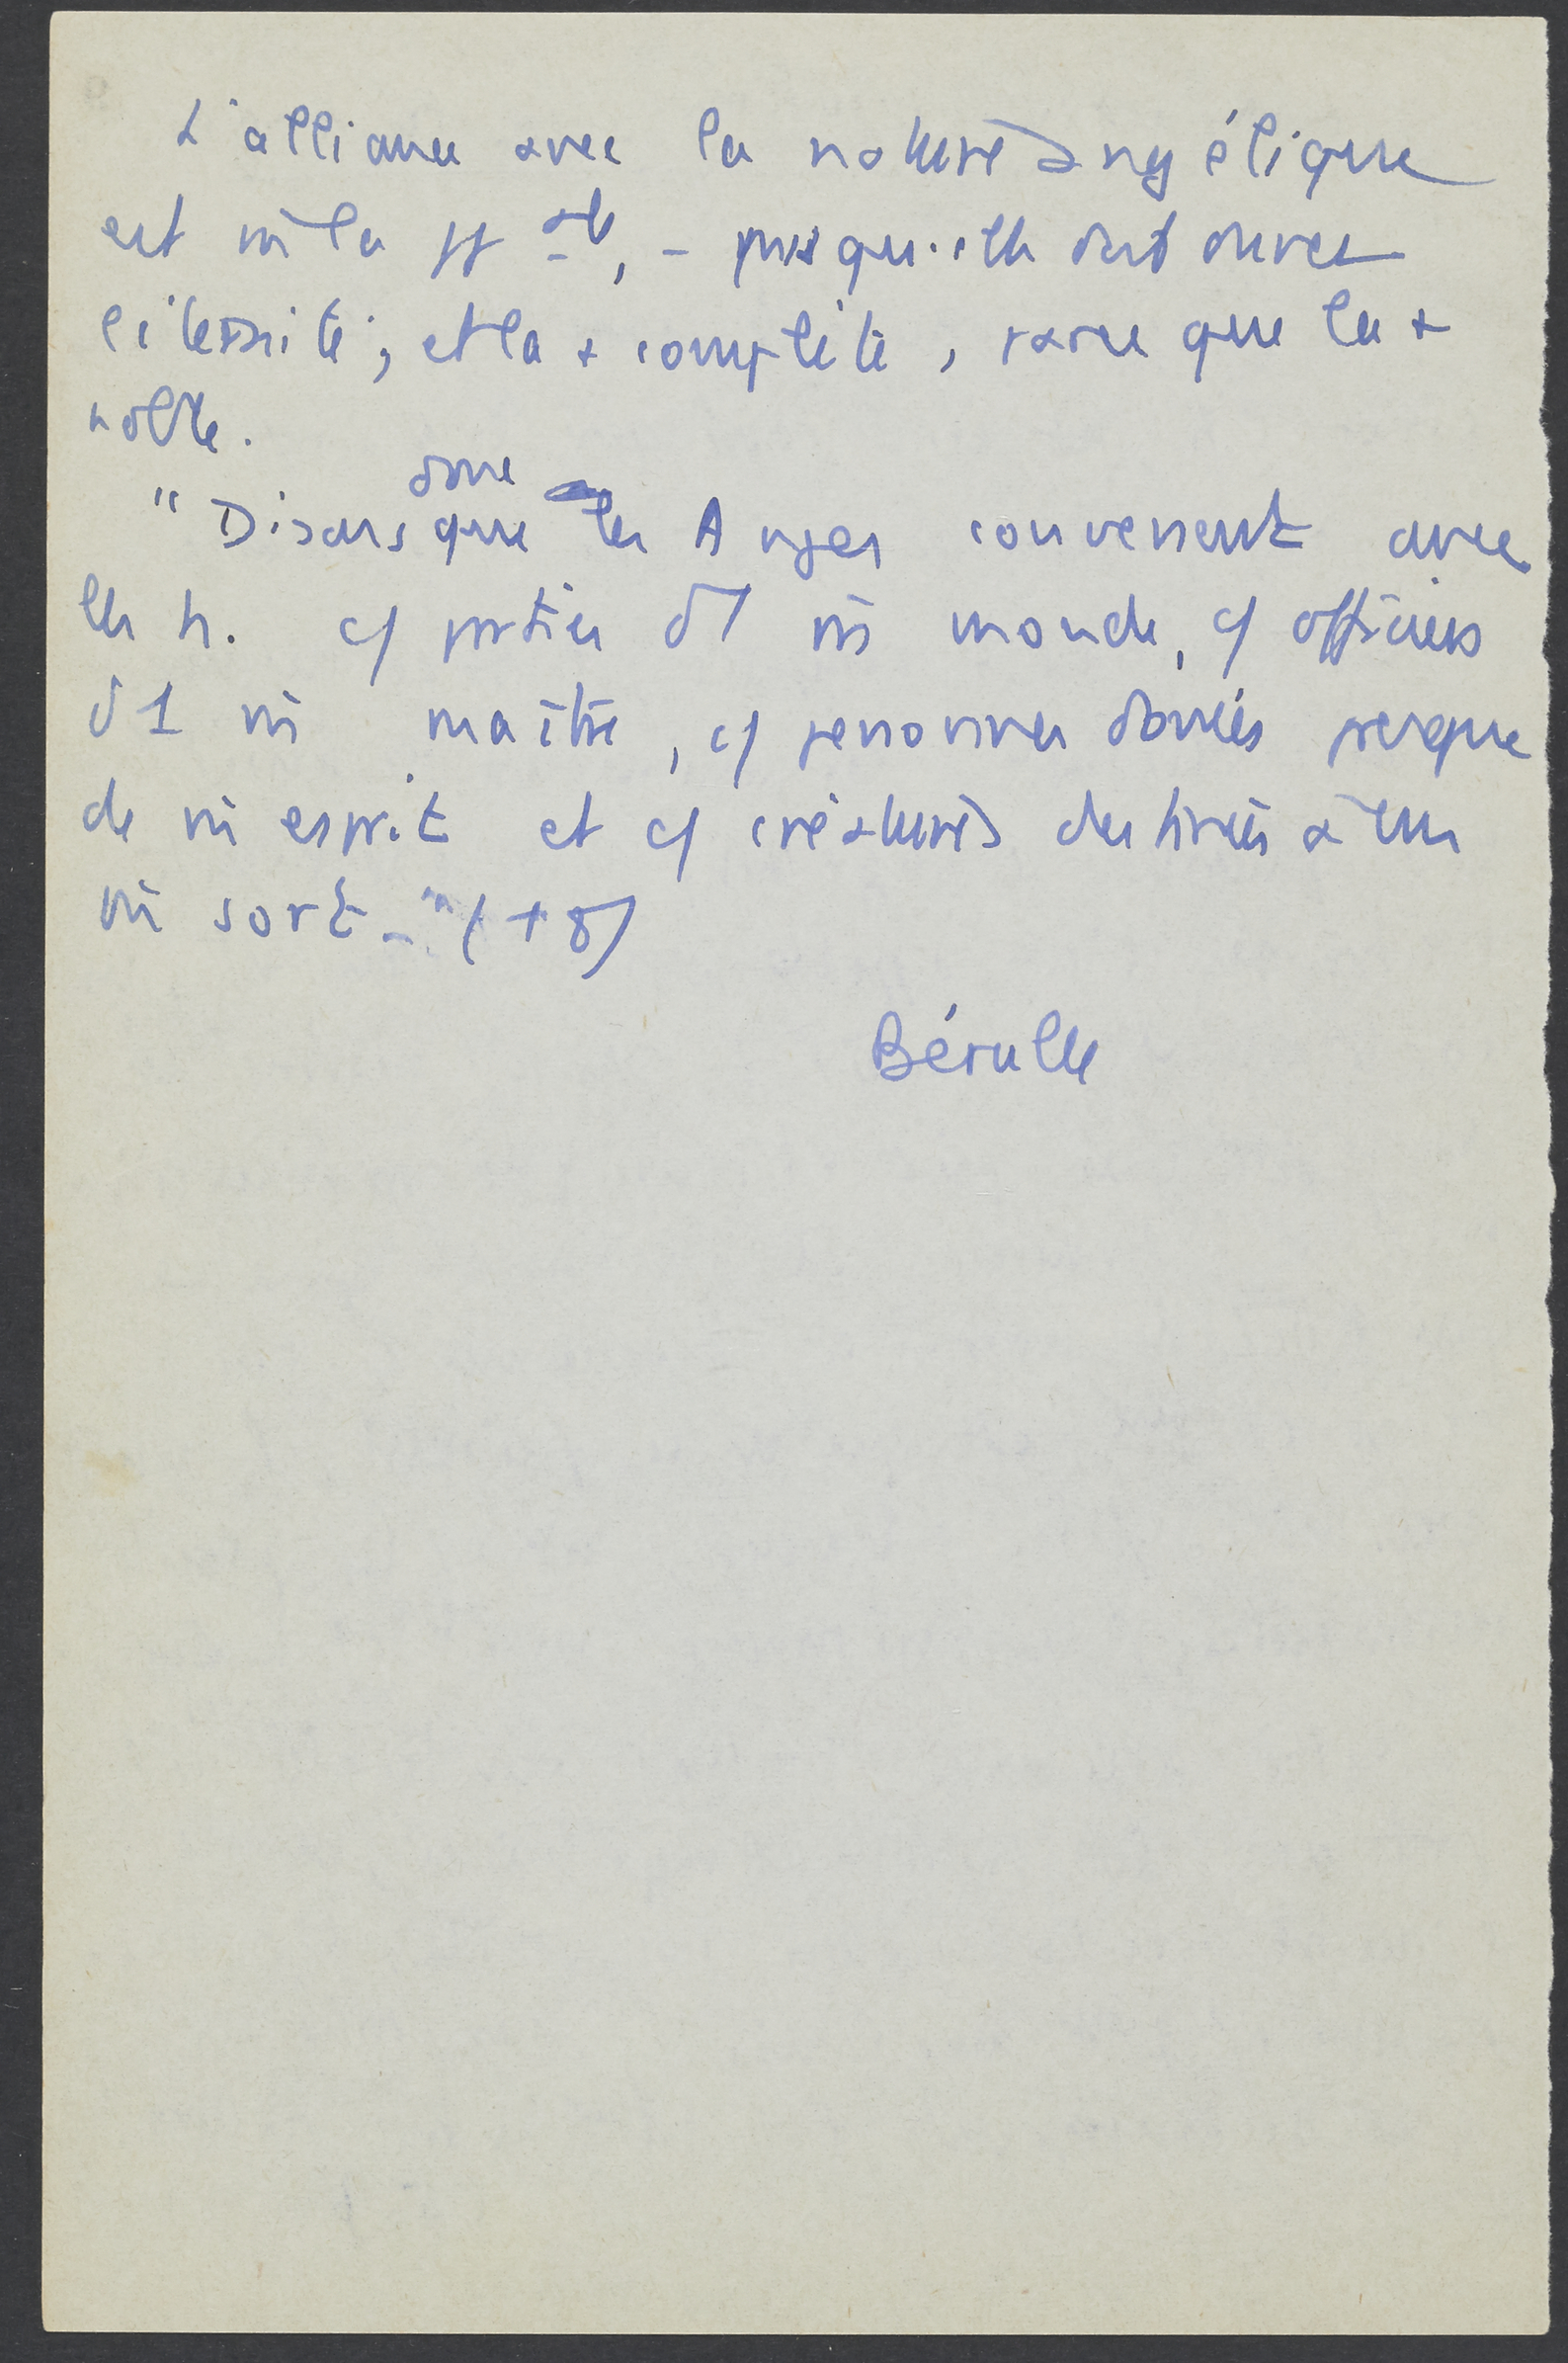 L'alliance avec la nature angélique
est m̂ la pp ale, - puisqu'elle doit durer
l'éternité; et la + complète, parce que la +
noble.
donc
"Disons que les Anges conviennent avec
les h. c/ parties d'1 m̂ monde, c/ officiers
d'1 m̂ maître, c/ personnes douées presque
de m̂ esprit et c/ créatures destinées à un
m̂ sort-" (+8)
Bérulle